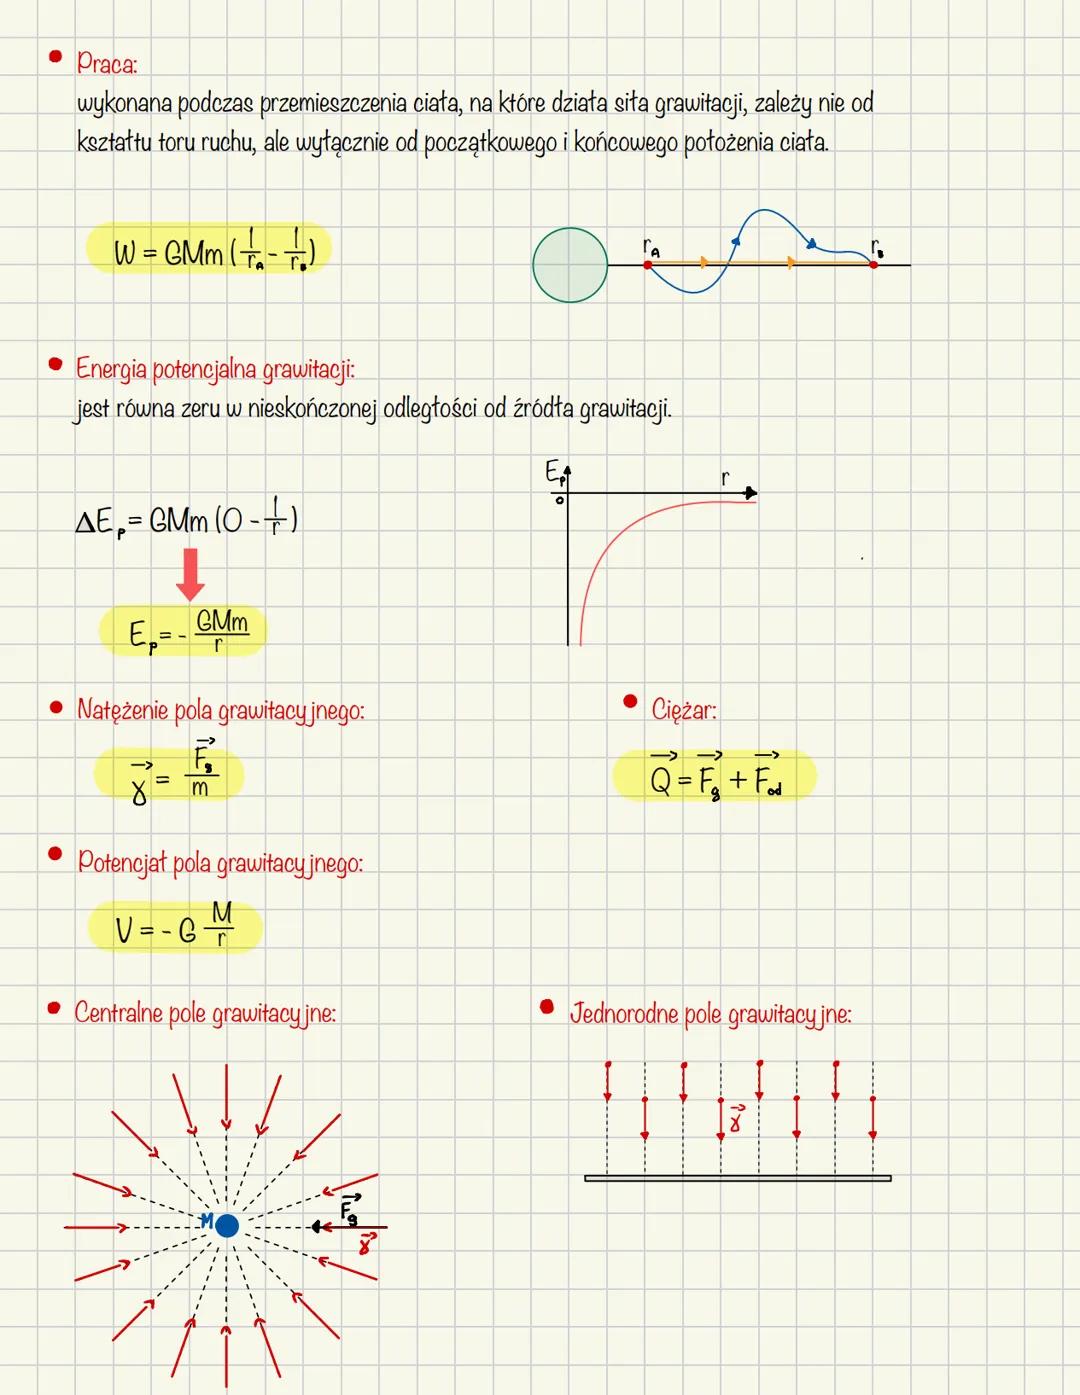 Praca:
wykonana podczas przemieszczenia ciała, na które działa siła grawitacji, zależy nie od
kształtu toru ruchu, ale wyłącznie od początkowego i końcowego położenia ciała.
W = GMm (1/r_A - 1/r_B)
r_A
r_B
Energia potencjalna grawitacji:
jest równa zeru w nieskończonej odległości od źródła grawitacji.
E_p
r
0
ΔE_p = GMm (0 - 1/r)
E_p = - GMm/r
Natężenie pola grawitacyjnego:
Ciężar:
γ⃗ = F⃗_g/m
Q⃗ = F⃗_g + F⃗_od
Potencjał pola grawitacyjnego:
V = - G M/r
Centralne pole grawitacyjne:
Jednorodne pole grawitacyjne:
γ⃗
M
F⃗_g
γ⃗